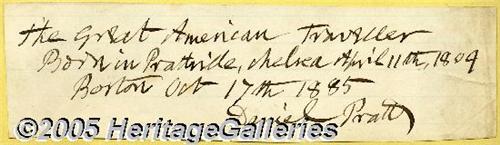 The Great American Traveller
Born in Prattville, Chelsea April 11th, 1809
Boston Oct 17th 1885
Daniel Pratt
©2005 HeritageGalleries